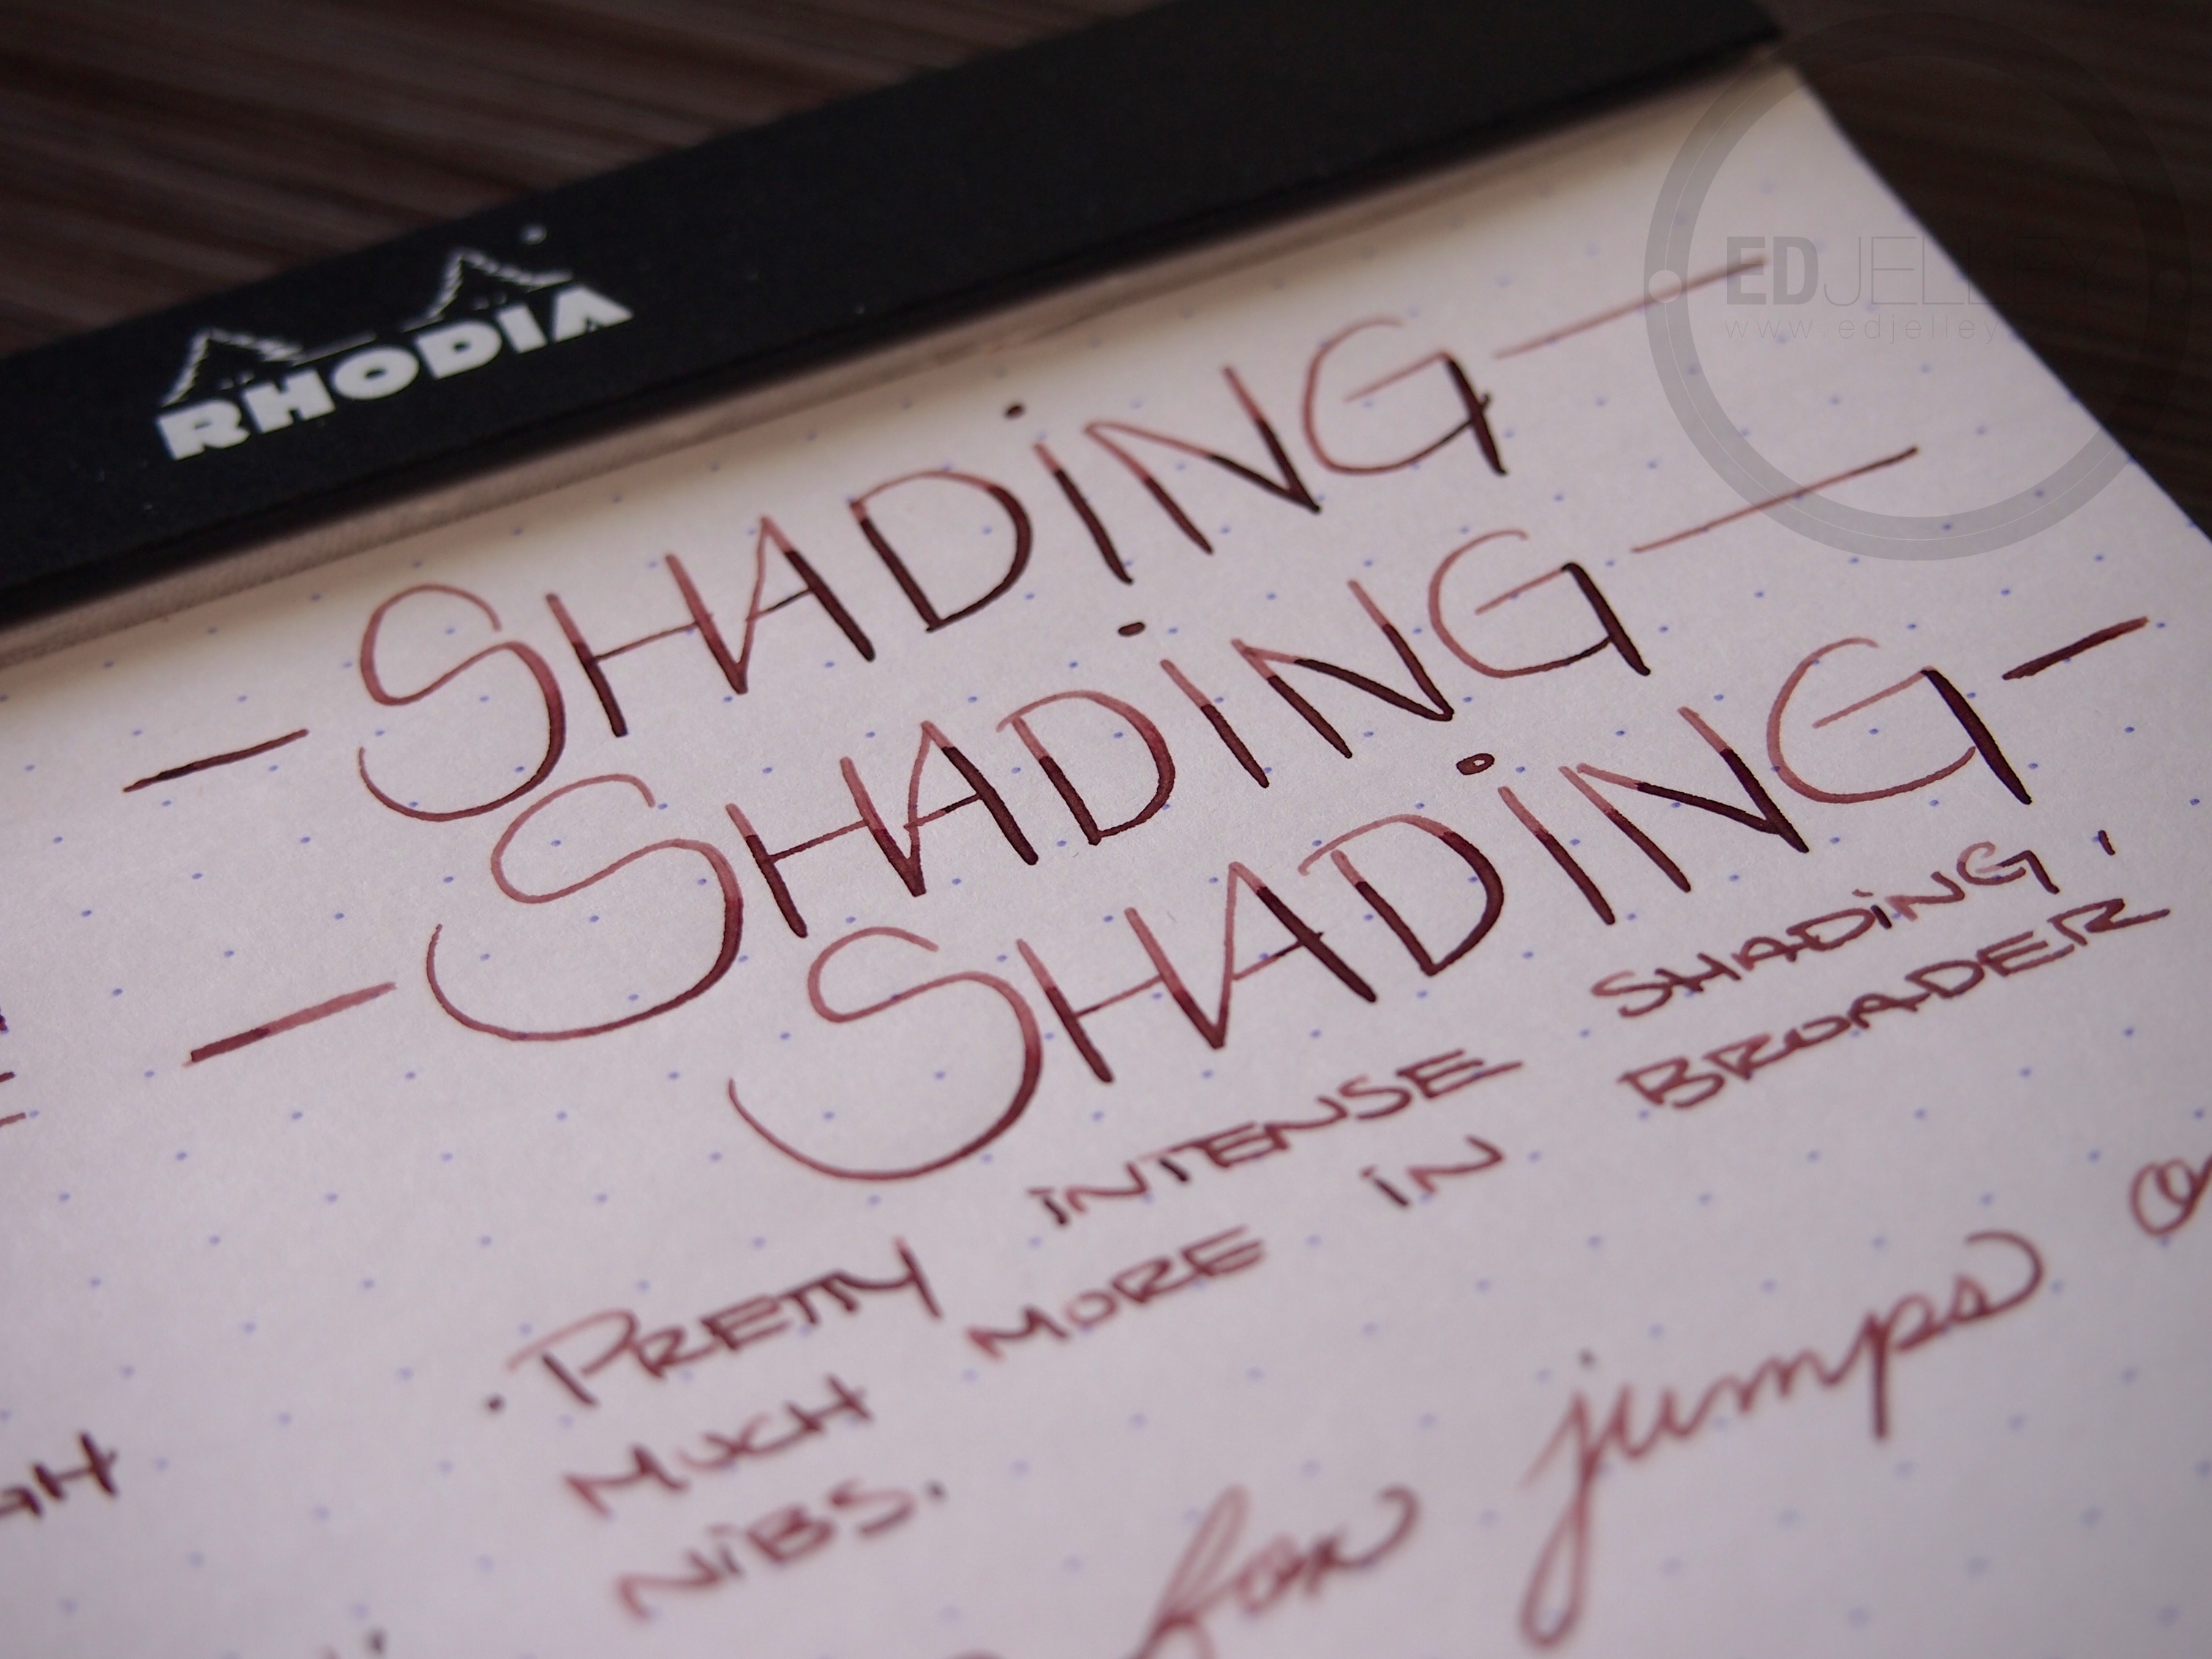 RHODIA
EDJELLEY
www.edjelley
- SHADiNG -
- SHADiNG -
SHADiNG -
. PRETTY iNTENSE SHADiNG,
MUCH MORE iN BROADER
NiBS.
fox jumps